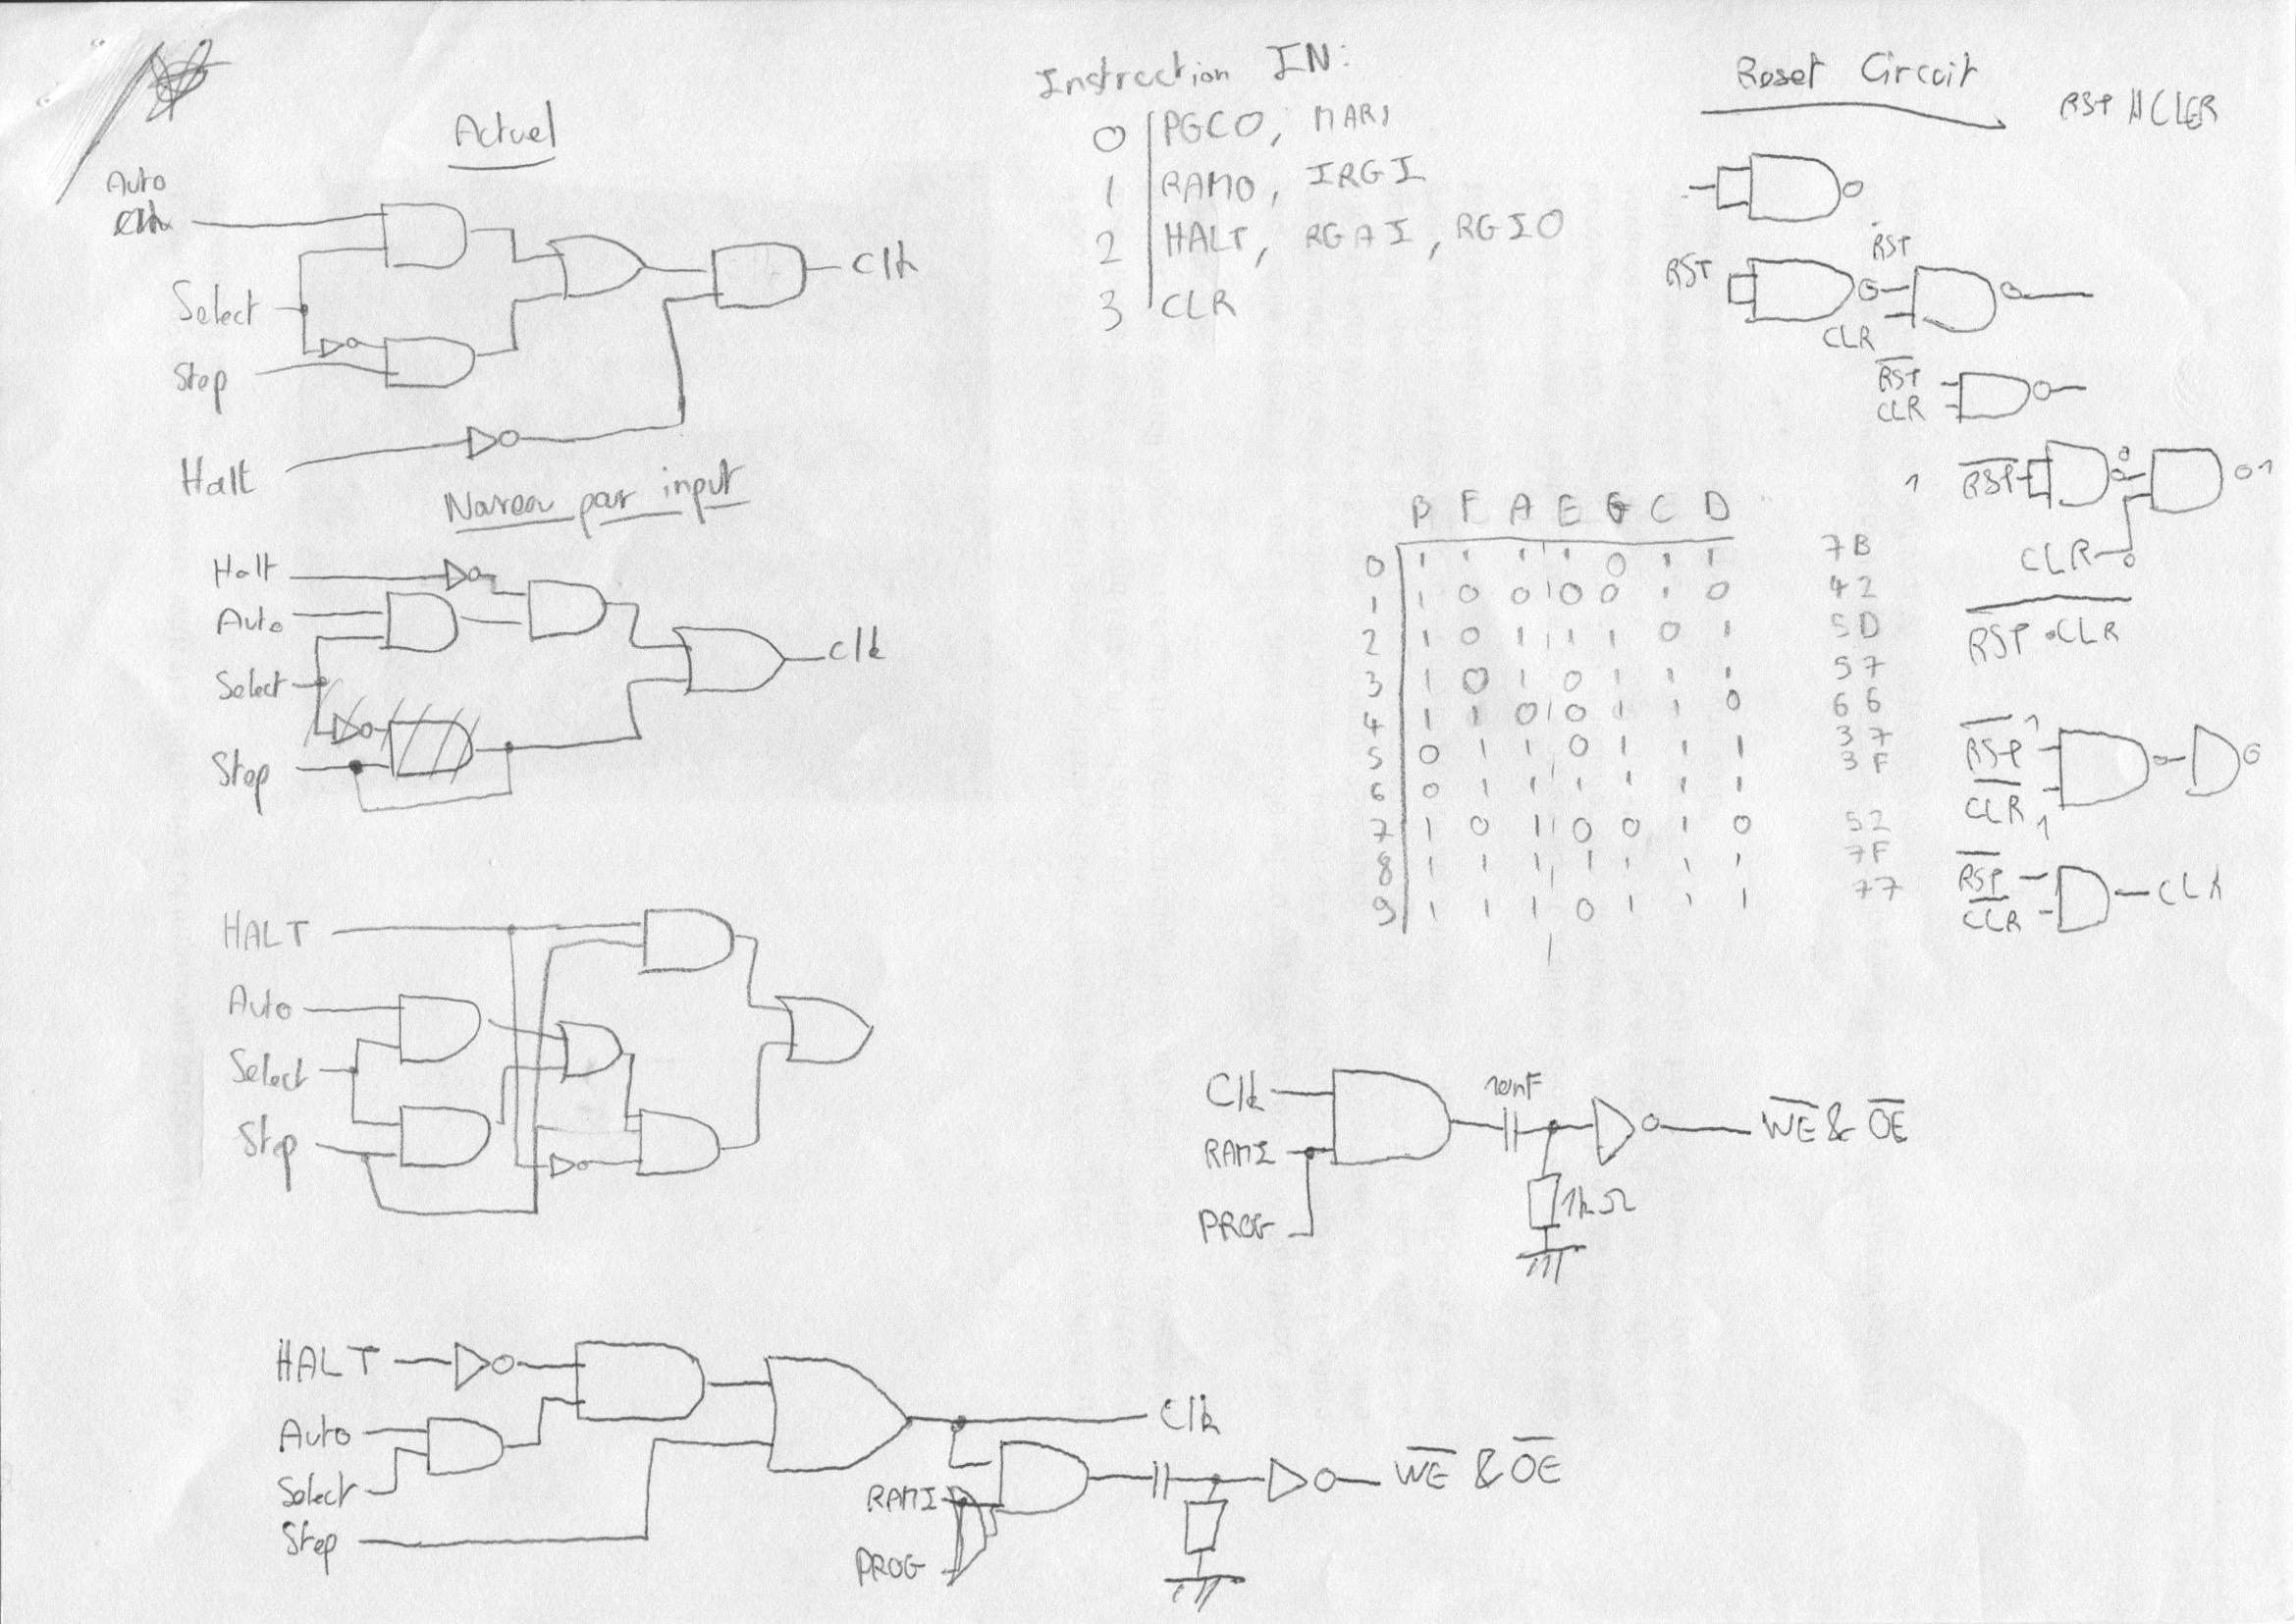 Actuel
Auto
Select
Step
Halt
Clk
Noveau par input
Halt
Auto
Select
Step
Clk
HALT
Auto
Select
Step
HALT
Auto
Select
Step
Clk
RAMI
PROG
WE & OE
Instruction IN:
0 PGCO, MARI
1 RAMO, IRGI
2 HALT, RGAI, RGIO
3 CLR
B F A E G C D
0 1 1 1 1 0 1 1 7B
1 1 0 0 0 0 1 0 42
2 1 0 1 1 1 0 1 5D
3 1 0 1 0 1 1 1 57
4 1 1 0 0 1 1 0 66
5 0 1 1 0 1 1 1 37
6 0 1 1 1 1 1 1 3F
7 1 0 1 0 0 1 0 52
8 1 1 1 1 1 1 1 7F
9 1 1 1 0 1 1 1 77
Clk
RAMI
PROG
10nF
1kΩ
WE & OE
Reset Circuit
RST
RST
CLR
RST
CLR
1 RST 0 0 1
CLR 0
RST . CLR
RST 1
CLR 1
RST
CLR
CLR